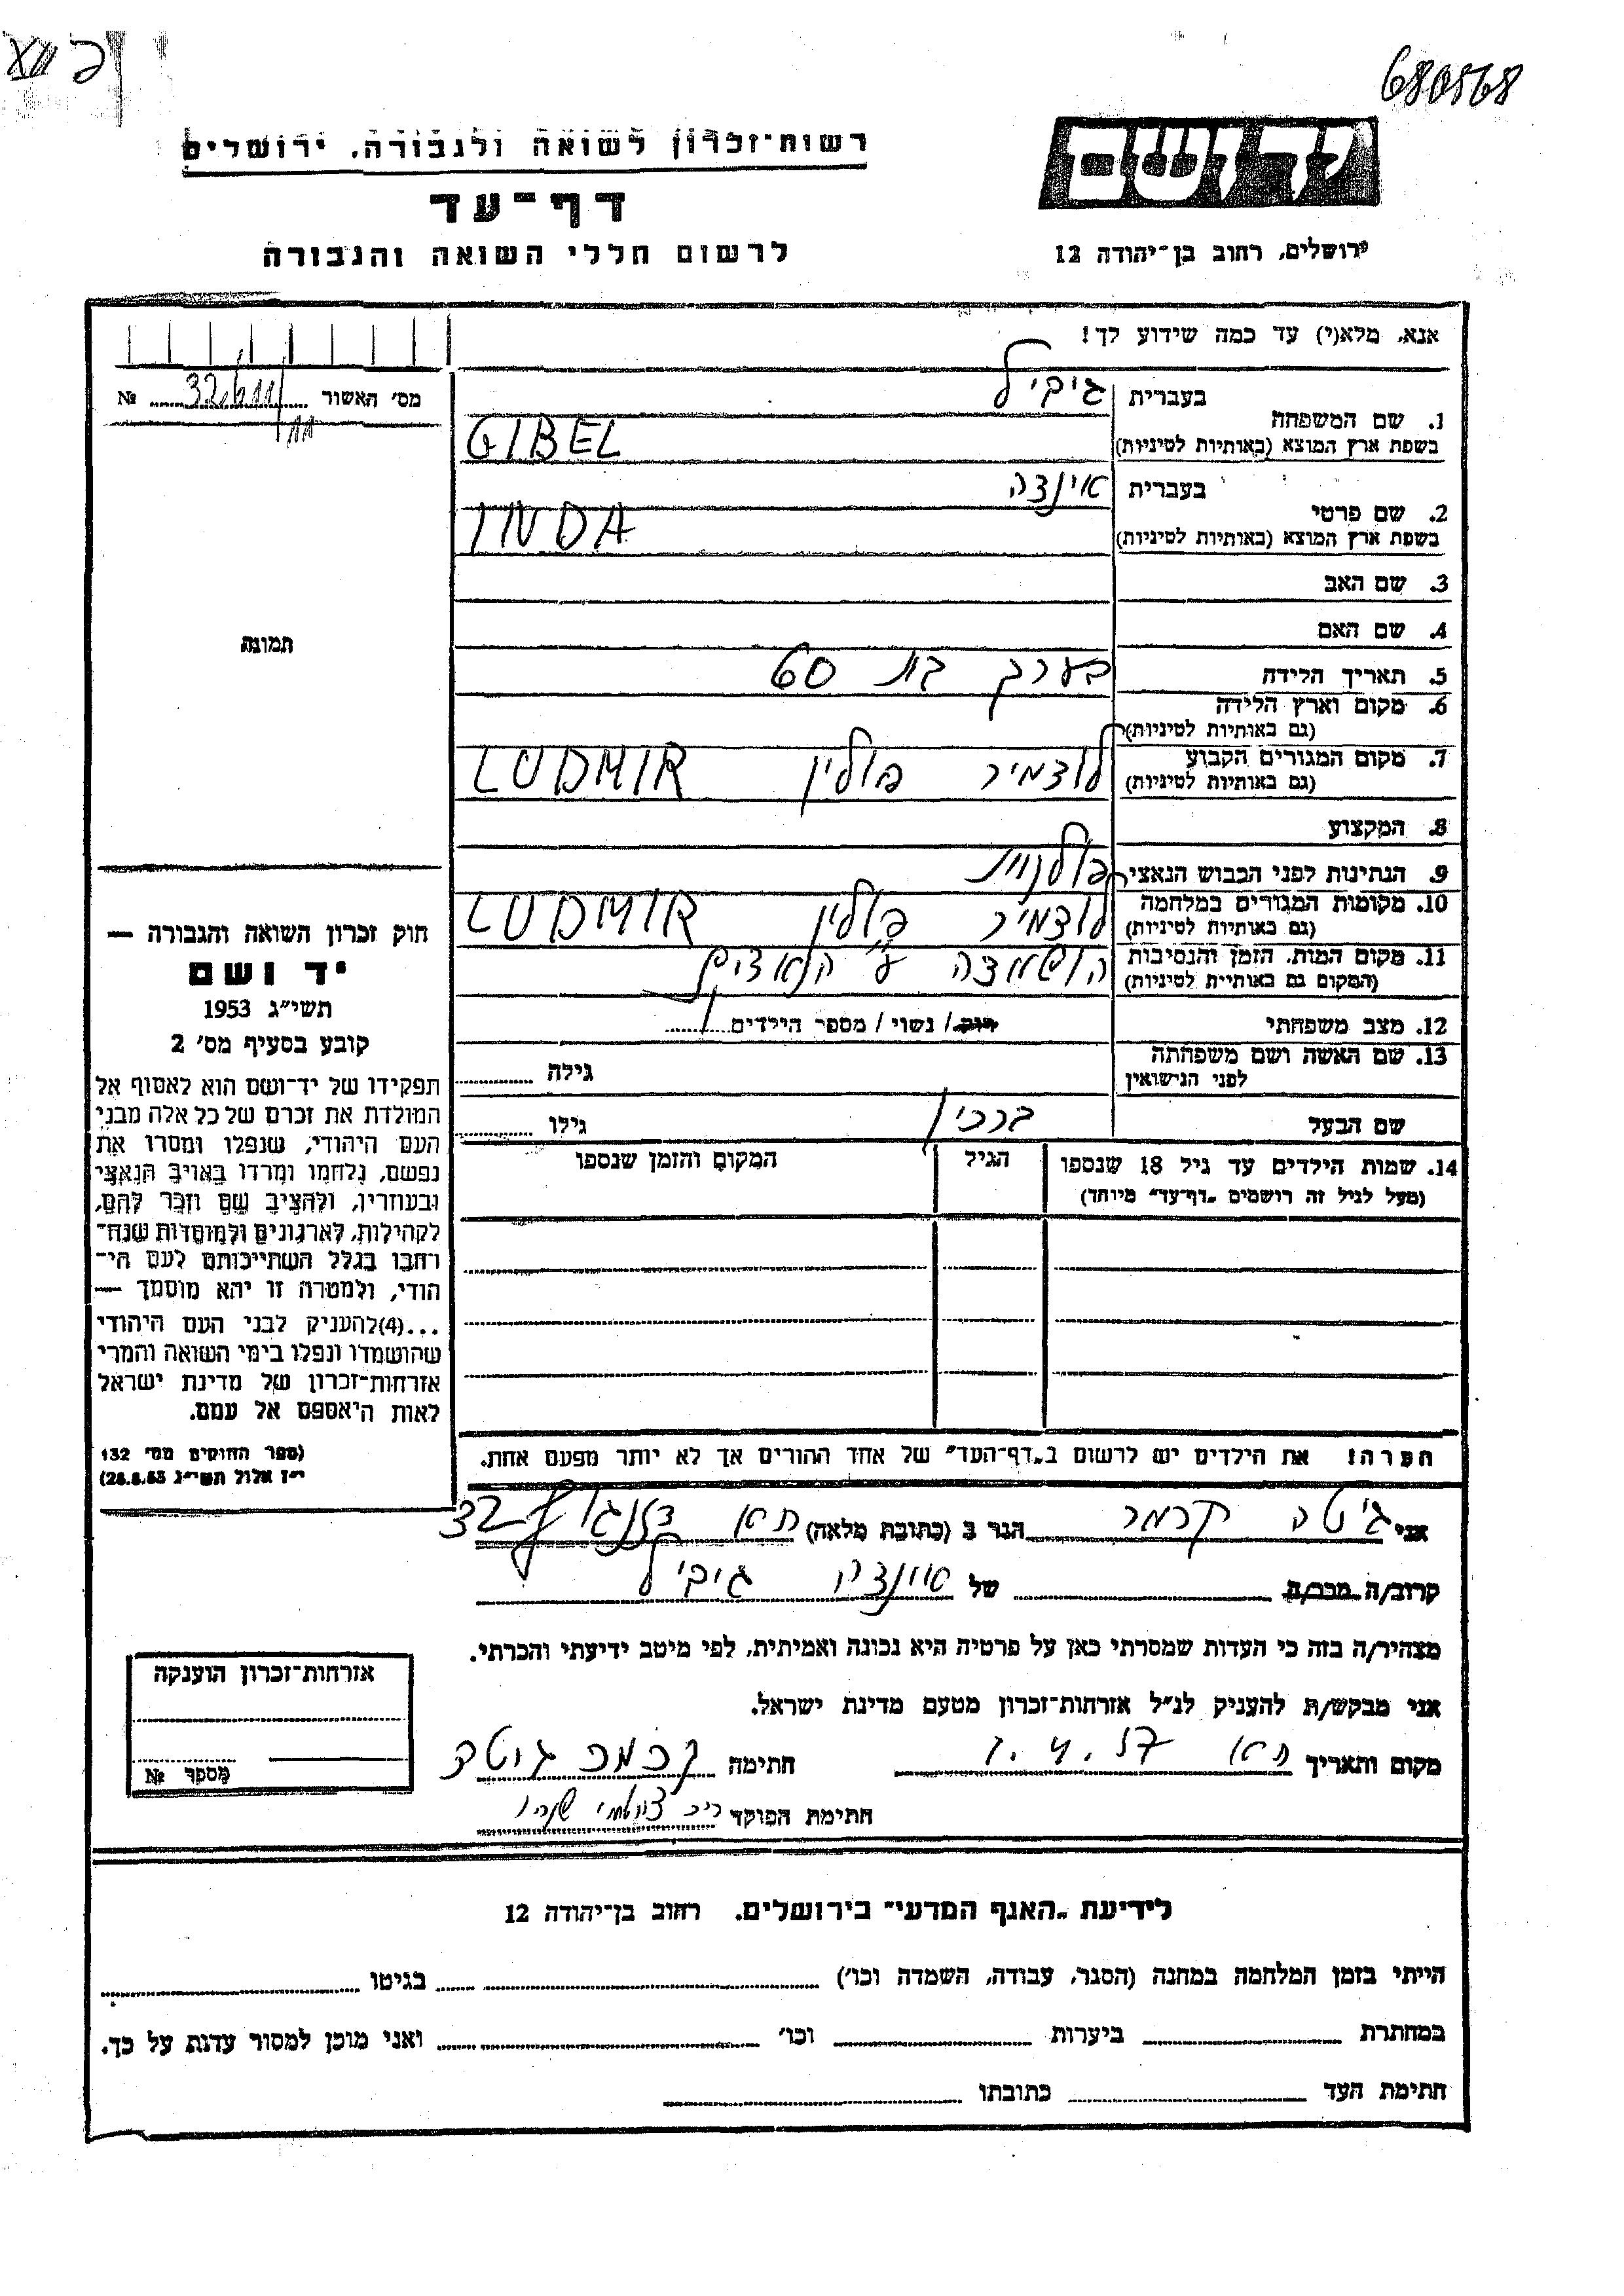 680568
יד ושם
ירושלים, רחוב בן־יהודה 12
רשות־זכרון לשואה ולגבורה, ירושלים
דף־עד
לרשום חללי השואה והגבורה
אנא, מלא(י) עד כמה שידוע לך!
מס׳ האשור 32611 №
1. שם המשפחה
בעברית גיבל
בשפת ארץ המוצא (באותיות לטיניות) GIBEL
2. שם פרטי
בעברית אינדה
בשפת ארץ המוצא (באותיות לטיניות) INDA
3. שם האב
4. שם האם
5. תאריך הלידה בערך בת 60
6. מקום וארץ הלידה
(גם באותיות לטיניות)
7. מקום המגורים הקבוע לודמיר פולין LUDMIR
(גם באותיות לטיניות)
8. המקצוע
9. הנתינות לפני הכבוש הנאצי פולנית
10. מקומות המגורים במלחמה לודמיר פולין LUDMIR
(גם באותיות לטיניות)
11. מקום המות, הזמן והנסיבות הושמדה ע״י הנאצים
(המקום גם באותיית לטיניות)
12. מצב משפחתי רוק/ נשוי / מספר הילדים
13. שם האשה ושם משפחתה גילה
לפני הנישואין
שם הבעל גילו
14. שמות הילדים עד גיל 18 שנספו הגיל המקום והזמן שנספו
(מעל לגיל זה רושמים „דף־עד״ מיוחד)
הערה! את הילדים יש לרשום ב„דף־העד״ של אחד ההורים אך לא יותר מפעם אחת.
תמונה
חוק זכרון השואה והגבורה —
יד ושם
תשי״ג 1953
קובע בסעיף מס׳ 2
תפקידו של יד־ושם הוא לאסוף אל
המולדת את זכרם של כל אלה מבני
העם היהודי, שנפלו ומסרו את
נפשם, נלחמו ומרדו באויב הנאצי
ובעוזריו, ולהציב שם וזכר להם,
לקהילות, לארגונים ולמוסדות שנח־
רחבו בגלל השתייכותם לעם הי־
הודי, ולמטרה זו יהא מוסמך —
...(4)להעניק לבני העם היהודי
שהושמדו ונפלו בימי השואה והמרי
אזרחות־זכרון של מדינת ישראל
לאות היאספם אל עמם.
(ספר החוקים מס׳ 132
י״ז אלול תשי״ג 28.8.53)
אני גיטה קרמר הגר ב (כתובת מלאה) ת״א דיזנגוף 32
קרוב/ה מכר/ה של אינדה גיבל
מצהיר/ה בזה כי העדות שמסרתי כאן על פרטיה היא נכונה ואמיתית, לפי מיטב ידיעתי והכרתי.
אני מבקש/ת להעניק לנ״ל אזרחות־זכרון מטעם מדינת ישראל.
מקום ותאריך ת״א 7.4.57 חתימה קרמר גיטה
חתימת הפוקד
אזרחות־זכרון הוענקה
מספר №
לידיעת „האגף המדעי״ בירושלים, רחוב בן־יהודה 12
הייתי בזמן המלחמה במחנה (הסגר, עבודה, השמדה וכו׳) בגיטו
במחתרת ביערות וכו׳ ואני מוכן למסור עדות על כך.
חתימת העד כתובתו